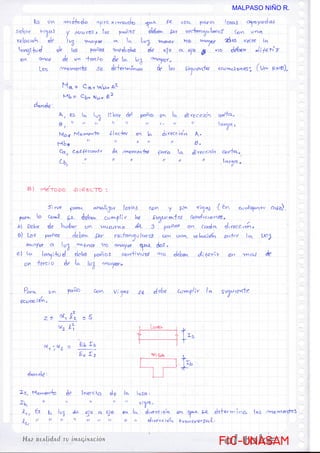 MALPASO NIÑO R.
Es un método aproximado que se usa para losas apoyadas
sobre vigas y muros. Los paños deben ser rectangulares con una
relación de luz mayor a la luz menor no mayor
longitud de los paños medidos de eje a eje no deben diferir
en más de un tercio de la luz mayor.
Los momentos se determinan de las siguientes ecuaciones:
MA = CA * Wu * A²
MB = CB * Wu * B²
donde:
A, es la luz libre del paño en la dirección corta.
B, " " " " " " " " larga.
MA, Momento flector en la dirección A.
MB " " " " B.
CA, Coeficiente de momentos para la dirección corta.
CB, " " " " " larga.
B) MÉTODO DIRECTO:
Sirve para analizar losas con y sin vigas (en cualquier caso)
para lo cual se deben cumplir las siguientes condiciones.
a) Debe de haber un mínimo de 3 paños en cada dirección.
b) Los paños deben ser rectangulares con una relación entre la luz
mayor a luz menor no mayor que dos.
c) La longitud de los paños continuos no deben diferir en más de
un tercio de la luz mayor.
Para un paño con vigas se debe cumplir la siguiente
ecuación.
Losa
Is
Viga
Ib
donde:
Is, Momento de Inercia de la losa.
Ib, " " " " " viga.
l₁, Es la luz de eje a eje en la dirección en que se determina los momentos
l₂, " " " " " " " " dirección transversal.
Haz realidad tu imaginación
FIC-UNASAM